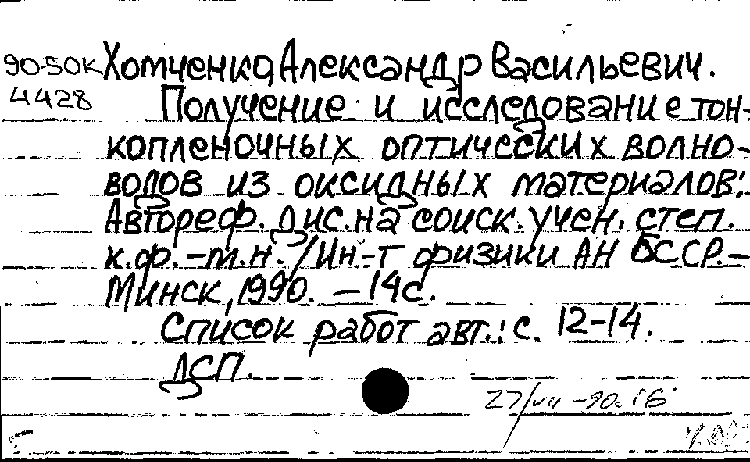 90-50К Хомченко, Александр Васильевич.
4428 Получение и исследование тон-
копленочных оптических волно-
водов из оксидных материалов:
Автореф. дис. на соиск. учен. степ.
к.ф.-м.н. / Ин-т физики АН БССР.-
Минск, 1990. - 14 с.
Список работ авт.: с. 12-14.
ДСП.
27/VII -90.